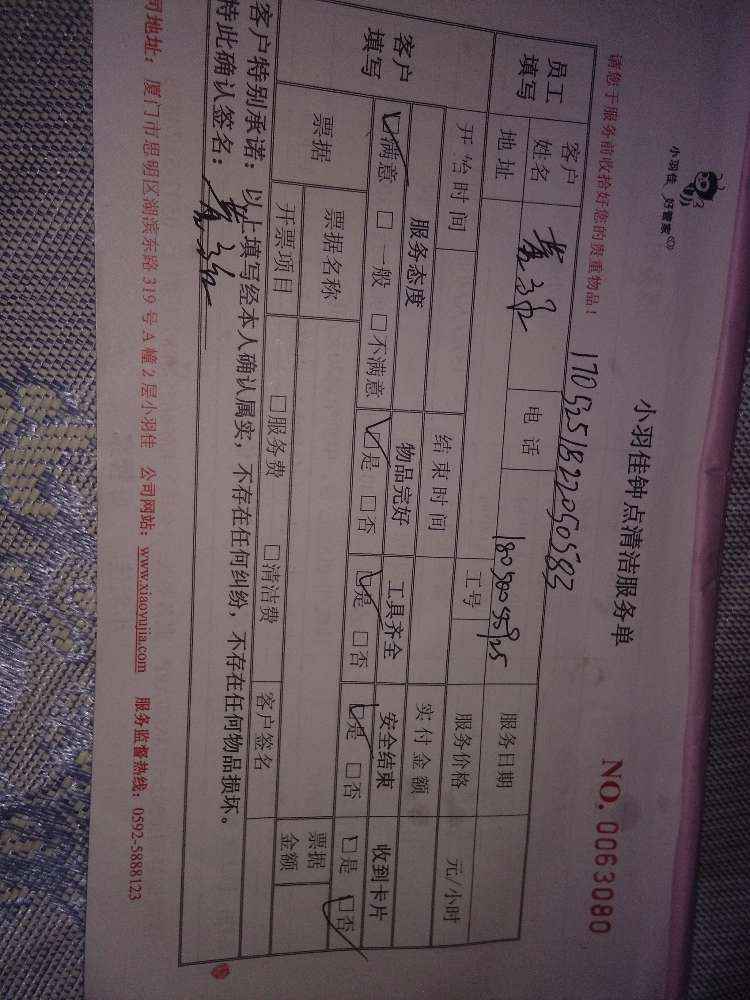 小羽佳 好管家
小羽佳钟点清洁服务单
NO. 0063080
请您于服务前收拾好您的贵重物品！
员工填写
客户姓名
电话
服务日期
地址
工号
服务价格
元/小时
开始时间
结束时间
实付金额
客户填写
服务态度
物品完好
工具齐全
安全结束
收到卡片
☑满意 □一般 □不满意
☑是 □否
☑是 □否
☑是 □否
□是 ☑否
票据
票据名称
票据金额
开票项目
□服务费 □清洁费
客户签名
客户特别承诺：以上填写经本人确认属实，不存在任何纠纷，不存在任何物品损坏。
特此确认签名：
司地址：厦门市思明区湖滨东路319号A幢2层小羽佳 公司网站：www.xiaoyujia.com 服务监督热线：0592-5888123